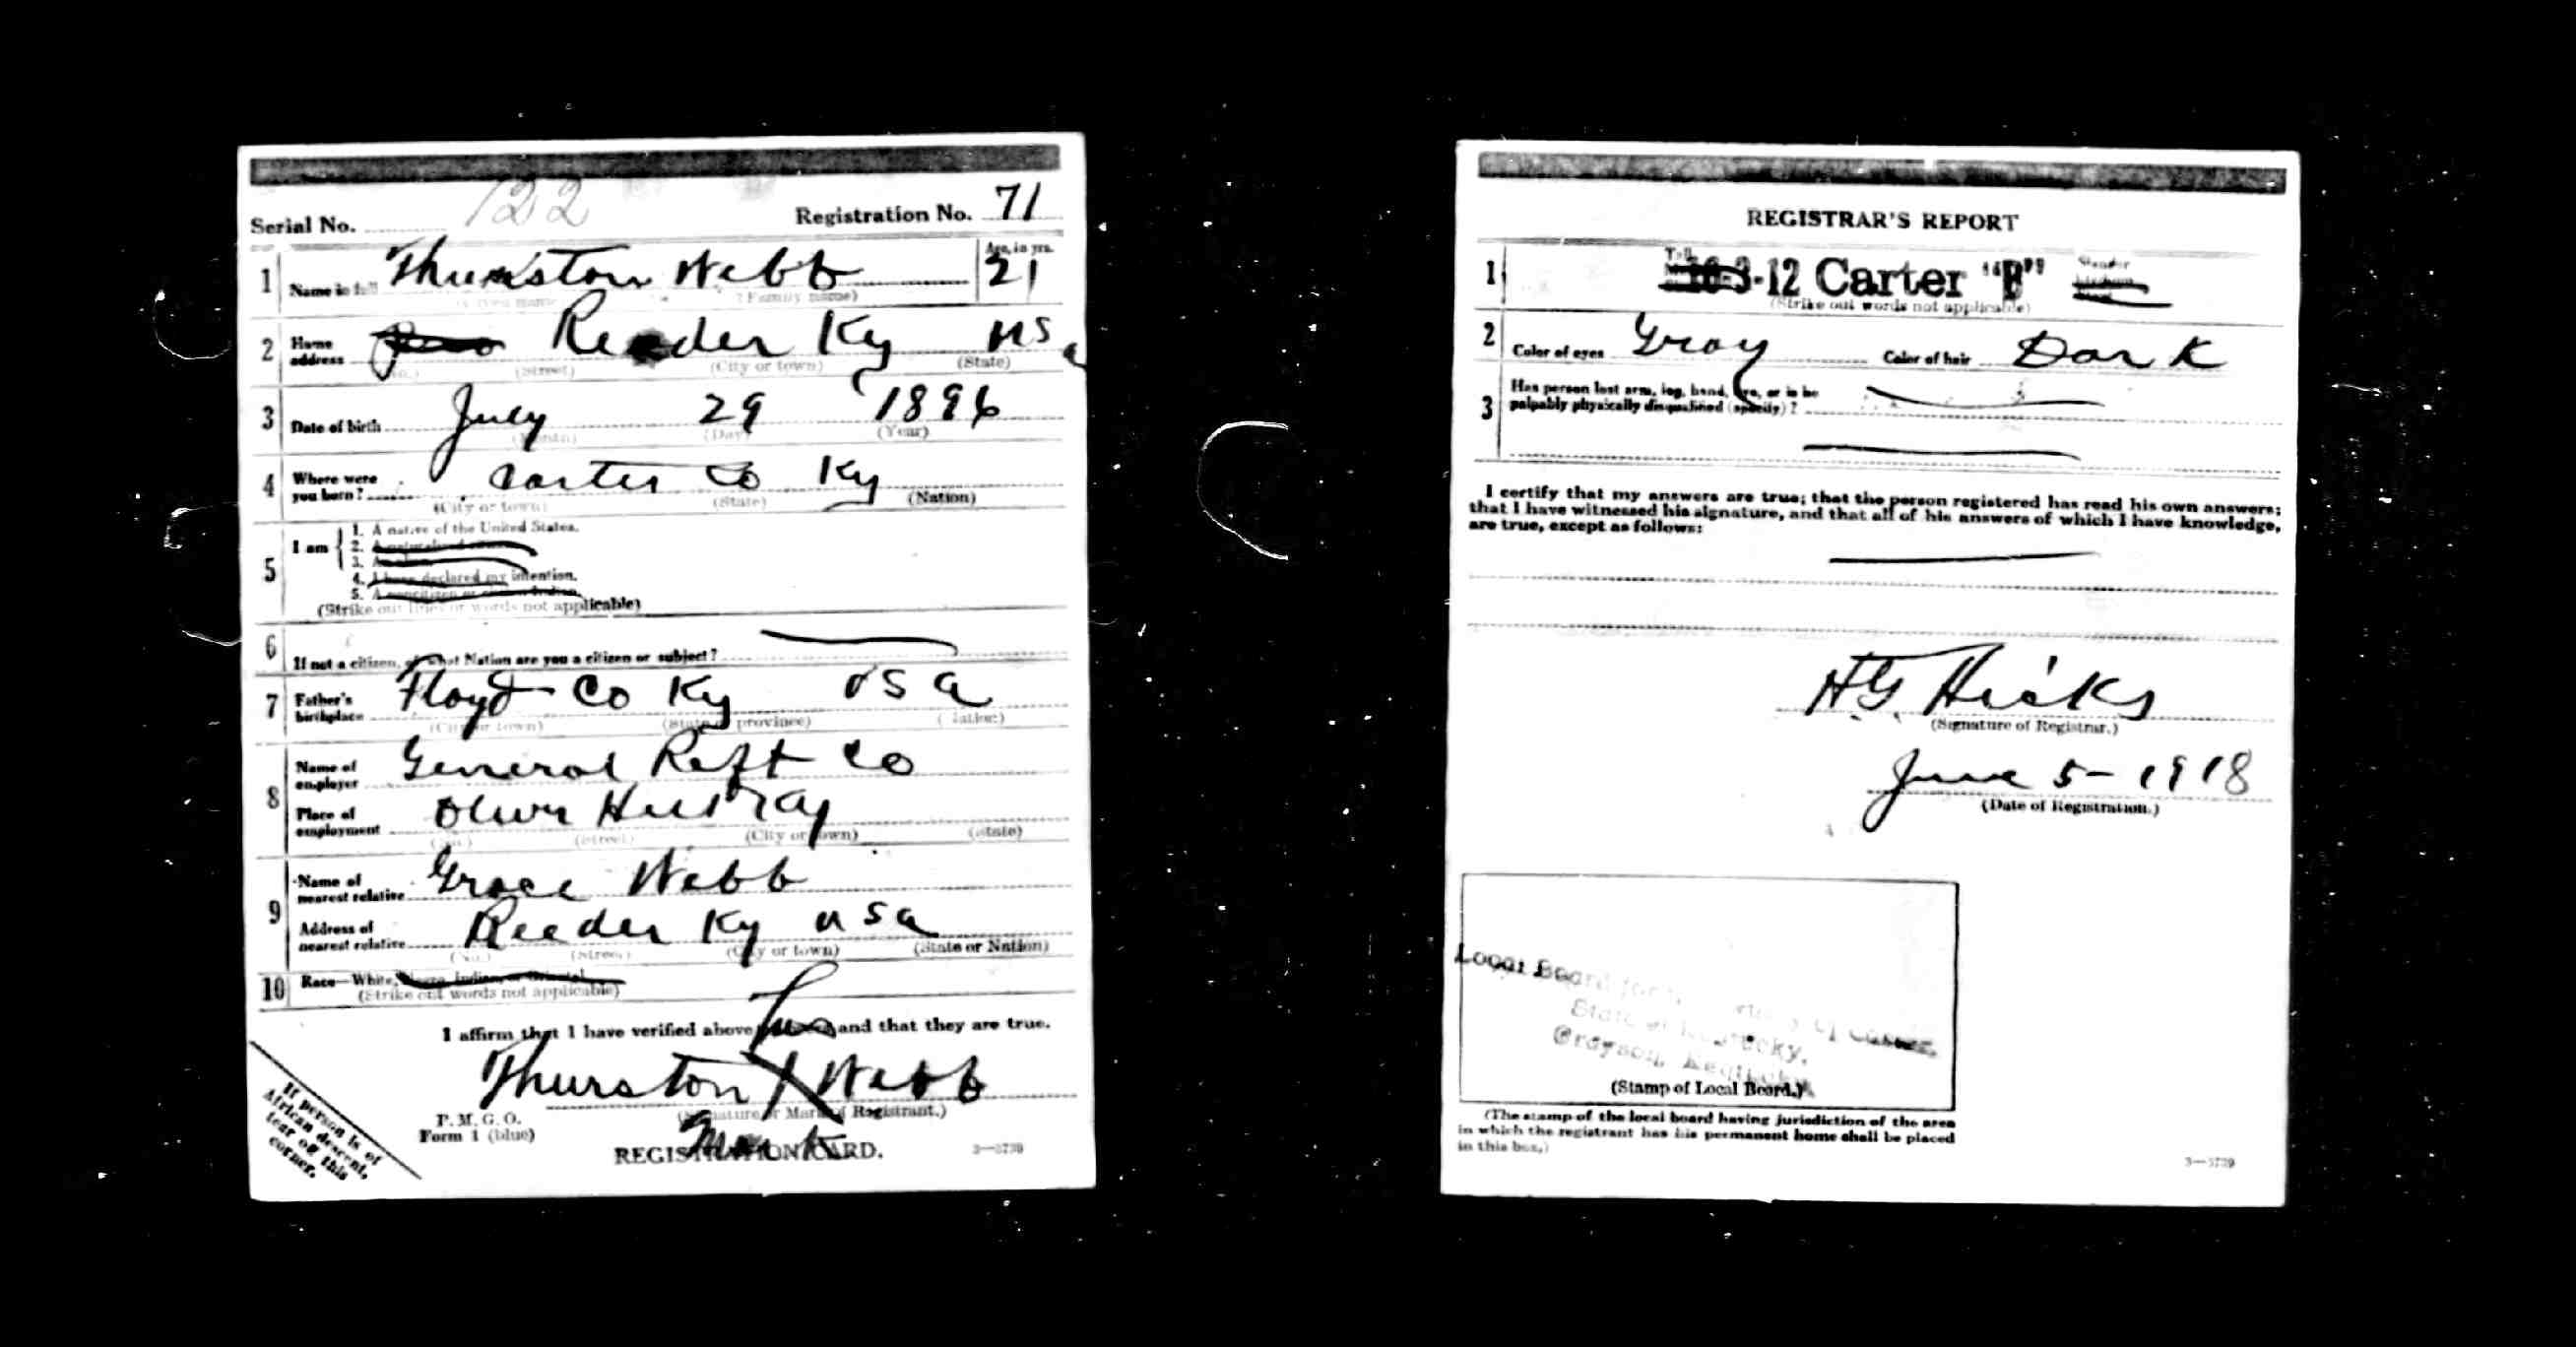 Serial No. 122 Registration No. 71
1 Name in full Thurston Webb Age, in yrs. 21
(Family name)
2 Home address Reeder Ky USa
(No.) (Street) (City or town) (State)
3 Date of birth July 29 1896
(Month) (Day) (Year)
4 Where were you born? Carter Co Ky
(City or town) (State) (Nation)
5 I am
1. A native of the United States.
2. A naturalized
3. An alien
4. I have declared my intention.
5. A noncitizen or citizen Indian.
(Strike out lines or words not applicable)
6 If not a citizen, of what Nation are you a citizen or subject?
7 Father's birthplace Floyd Co Ky USa
(City or town) (State or province) (Nation)
8 Name of employer General Reft Co
Place of employment
(No.) (Street) (City or town) (State)
9 Name of nearest relative Grace Webb
Address of nearest relative Reeder Ky USa
(No.) (Street) (City or town) (State or Nation)
10 Race—White, Negro, Indian, or Oriental
(Strike out words not applicable)
I affirm that I have verified above and that they are true.
his
Thurston X Webb
(Signature or Mark of Registrant.)
Mark
P. M. G. O.
Form 1 (blue)
REGISTRATION CARD.
3—5739
If person is of
African descent,
tear off this
corner.
REGISTRAR'S REPORT
1 Tall 16-3-12 Carter "B" Slender
(Strike out words not applicable)
2 Color of eyes Gray Color of hair Dark
3 Has person lost arm, leg, hand, eye, or is he
palpably physically disqualified (specify)?
I certify that my answers are true; that the person registered has read his own answers;
that I have witnessed his signature, and that all of his answers of which I have knowledge,
are true, except as follows:
H.G. Hicks
(Signature of Registrar.)
June 5-1918
(Date of Registration.)
Local Board for County of Carter,
State of Kentucky,
Grayson, Kentucky
(Stamp of Local Board.)
(The stamp of the local board having jurisdiction of the area
in which the registrant has his permanent home shall be placed
in this box.)
3—5739